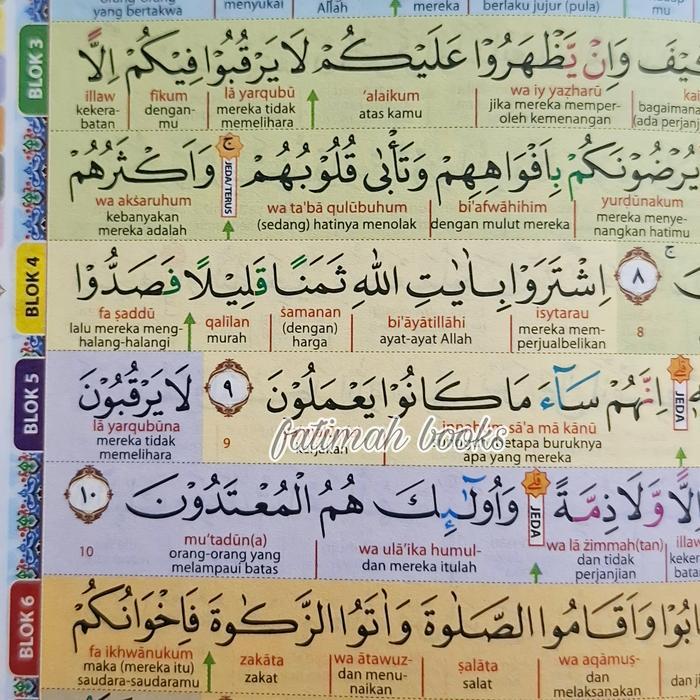 orang-orang yang bertakwa
menyukai
Allah
mereka
berlaku jujur (pula)
BLOK 3
كَيْفَ وَاِنْ يَّظْهَرُوْا عَلَيْكُمْ لَا يَرْقُبُوْا فِيْكُمْ اِلًّا
illaw fīkum lā yarqubū ‘alaikum wa iy yaẓharū
kekera-batan dengan-mu mereka tidak memelihara atas kamu jika mereka memper-oleh kemenangan bagaimana (ada perjanj
يُرْضُوْنَكُمْ بِاَفْوَاهِهِمْ وَتَأْبٰى قُلُوْبُهُمْ ۚ وَاَكْثَرُهُمْ
JEDA/TERUS
wa akṡaruhum wa ta'bā qulūbuhum bi'afwāhihim yurḍūnakum
kebanyakan mereka adalah (sedang) hatinya menolak dengan mulut mereka mereka menye-nangkan hatimu
BLOK 4
٨ اِشْتَرَوْا بِاٰيٰتِ اللّٰهِ ثَمَنًا قَلِيْلًا فَصَدُّوْا
fa ṣaddū qalīlan ṡamanan bi'āyātillāhi isytarau
lalu mereka meng-halang-halangi murah (dengan) harga ayat-ayat Allah mereka mem-perjualbelikan 8
BLOK 5
JEDA
اِنَّهُمْ سَاۤءَ مَا كَانُوْا يَعْمَلُوْنَ ٩ لَا يَرْقُبُوْنَ
lā yarqubūna innahum sā'a mā kānū
mereka tidak memelihara 9 kerjakan betapa buruknya apa yang mereka
fatimah books
اِلًّا وَّلَا ذِمَّةً ۗ وَاُولٰۤىِٕكَ هُمُ الْمُعْتَدُوْنَ ١٠
JEDA
mu‘tadūn(a) wa ulā'ika humul- wa lā żimmah(tan) illaw
10 orang-orang yang melampaui batas dan mereka itulah dan tidak perjanjian
BLOK 6
وَاَقَامُوا الصَّلٰوةَ وَاٰتَوُا الزَّكٰوةَ فَاِخْوَانُكُمْ
fa ikhwānukum zakāta wa ātawuz- ṣalāta wa aqāmuṣ-
maka (mereka itu) saudara-saudaramu zakat dan menu-naikan salat dan melaksanakan